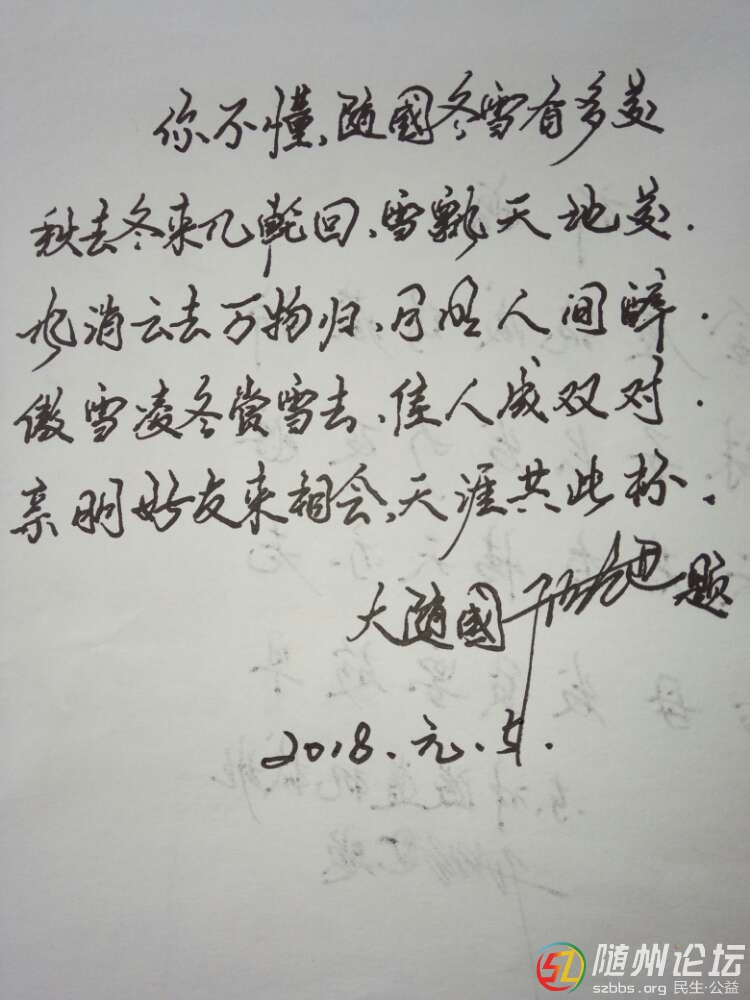 你不懂、随國冬雪有多美
秋去冬来几轮回、雪飘天地美.
冰消云去万物归、可但人间醉.
傲雪凌冬赏雪去、佳人成双对.
亲朋好友来相会、天涯共此杯.
大随國 题
2018.元.5.
随州论坛
szbbs.org 民生·公益